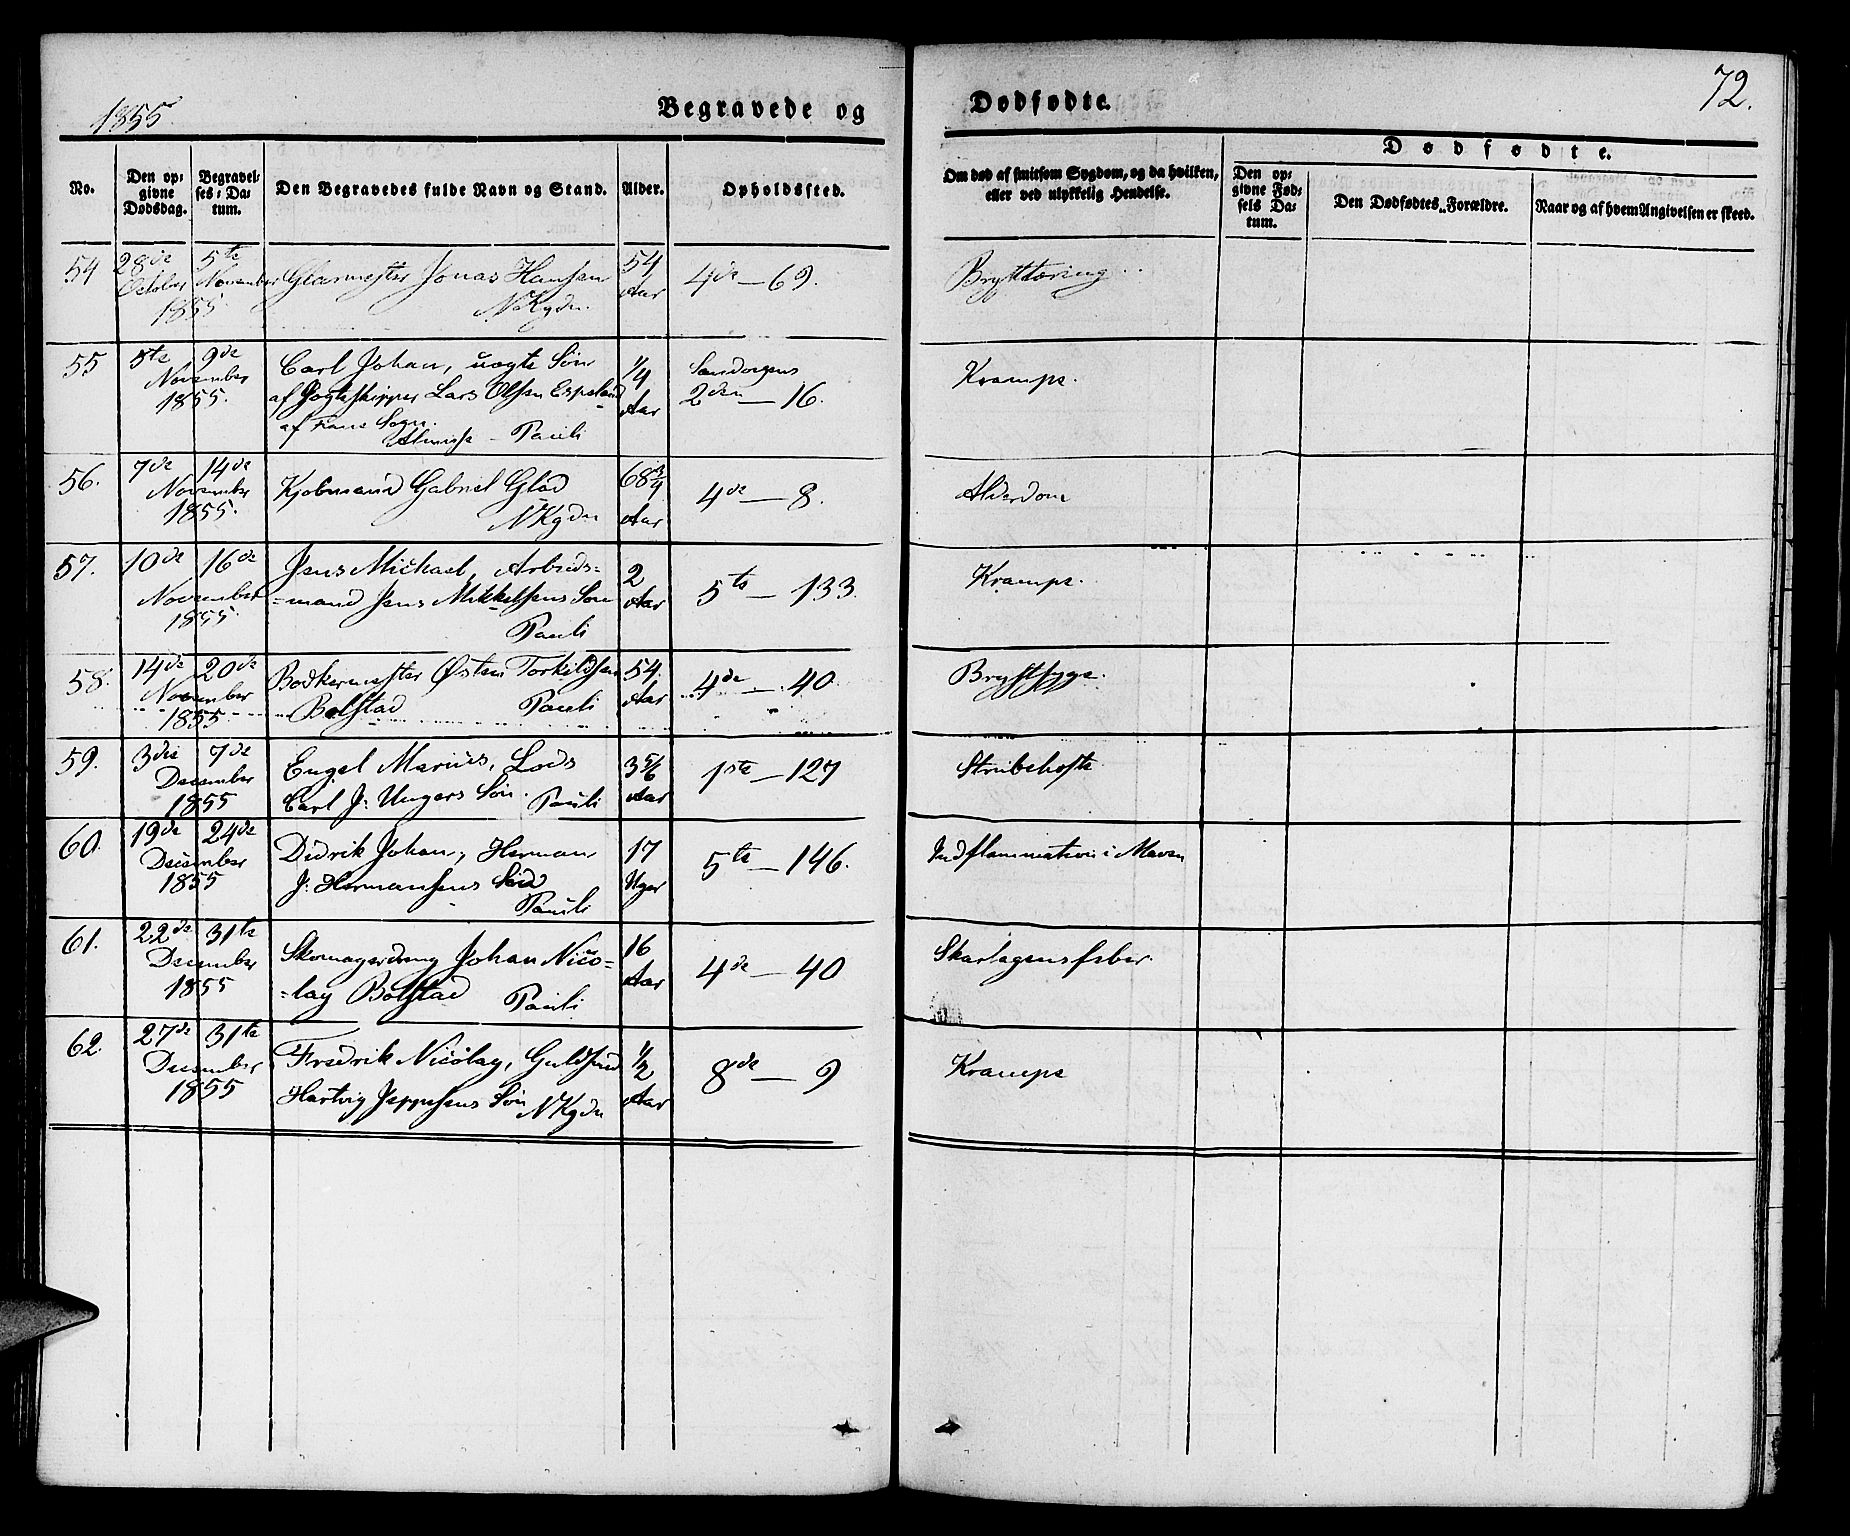 1855
Begravede og
Dødfødte.
72.
No.
Den op-
givne
Dødsdag.
Begravel-
ses-Da-
tum.
Den Begravedes fulde Navn og Stand.
Alder.
Opholdssted.
Om død af smitsom Sygdom, og da hvilken,
eller ved ulykkelig Hendelse.
Dødfødte.
Den op-
givne Fød-
sels Da-
tum.
Den Dødfødtes Forældre.
Naar og af hvem Angivelsen er skeed.
54 28de October 5te November 1855
Glarmester Jonas Hansen
NKgdn.
54 Aar
4de — 69.
Brysttæring
55 5te 9de November 1855.
Carl Johan, uægte Søn
af Jogteskipper Lars Olsen Espeland
af Fane Sogn.
Pauli
1/4 Aar
2den — 16.
Krampe.
56. 7de 14de November 1855.
Kjøbmand Gabriel Glad
NKgdn
68 3/4 Aar
4de — 8.
Alderdom
57. 10de 16de November 1855.
Jens Michael, Arbeids-
-mand Jens Mikkelsens Søn
Pauli
2 Aar
5te — 133.
Krampe.
58. 14de 20de November 1855
Bødkermester Østen Torkildsen
Bolstad Pauli
54. Aar
4de — 40.
Brystsyge.
59. 3die 7de December 1855
Engel Marius, Lods
Carl J: Ungers Søn. Pauli
3 5/6 Aar
1ste — 127
Strubehoste
60. 19de 24de December 1855
Didrik Johan, Herman
J: Hermansens Søn
Pauli
17 Uger
5te — 146.
Indflammation i Maven
61. 22de 31te December 1855
Skomagerdreng Johan Nico-
-lay Bolstad Pauli
16 Aar
4de — 40
Skarlagensfeber.
62. 27de 31te December 1855
Fredrik Nicolay, Guldsmed
Hartvig Jeppesens Søn NKgdn
1/2 Aar
8de — 9
Krampe